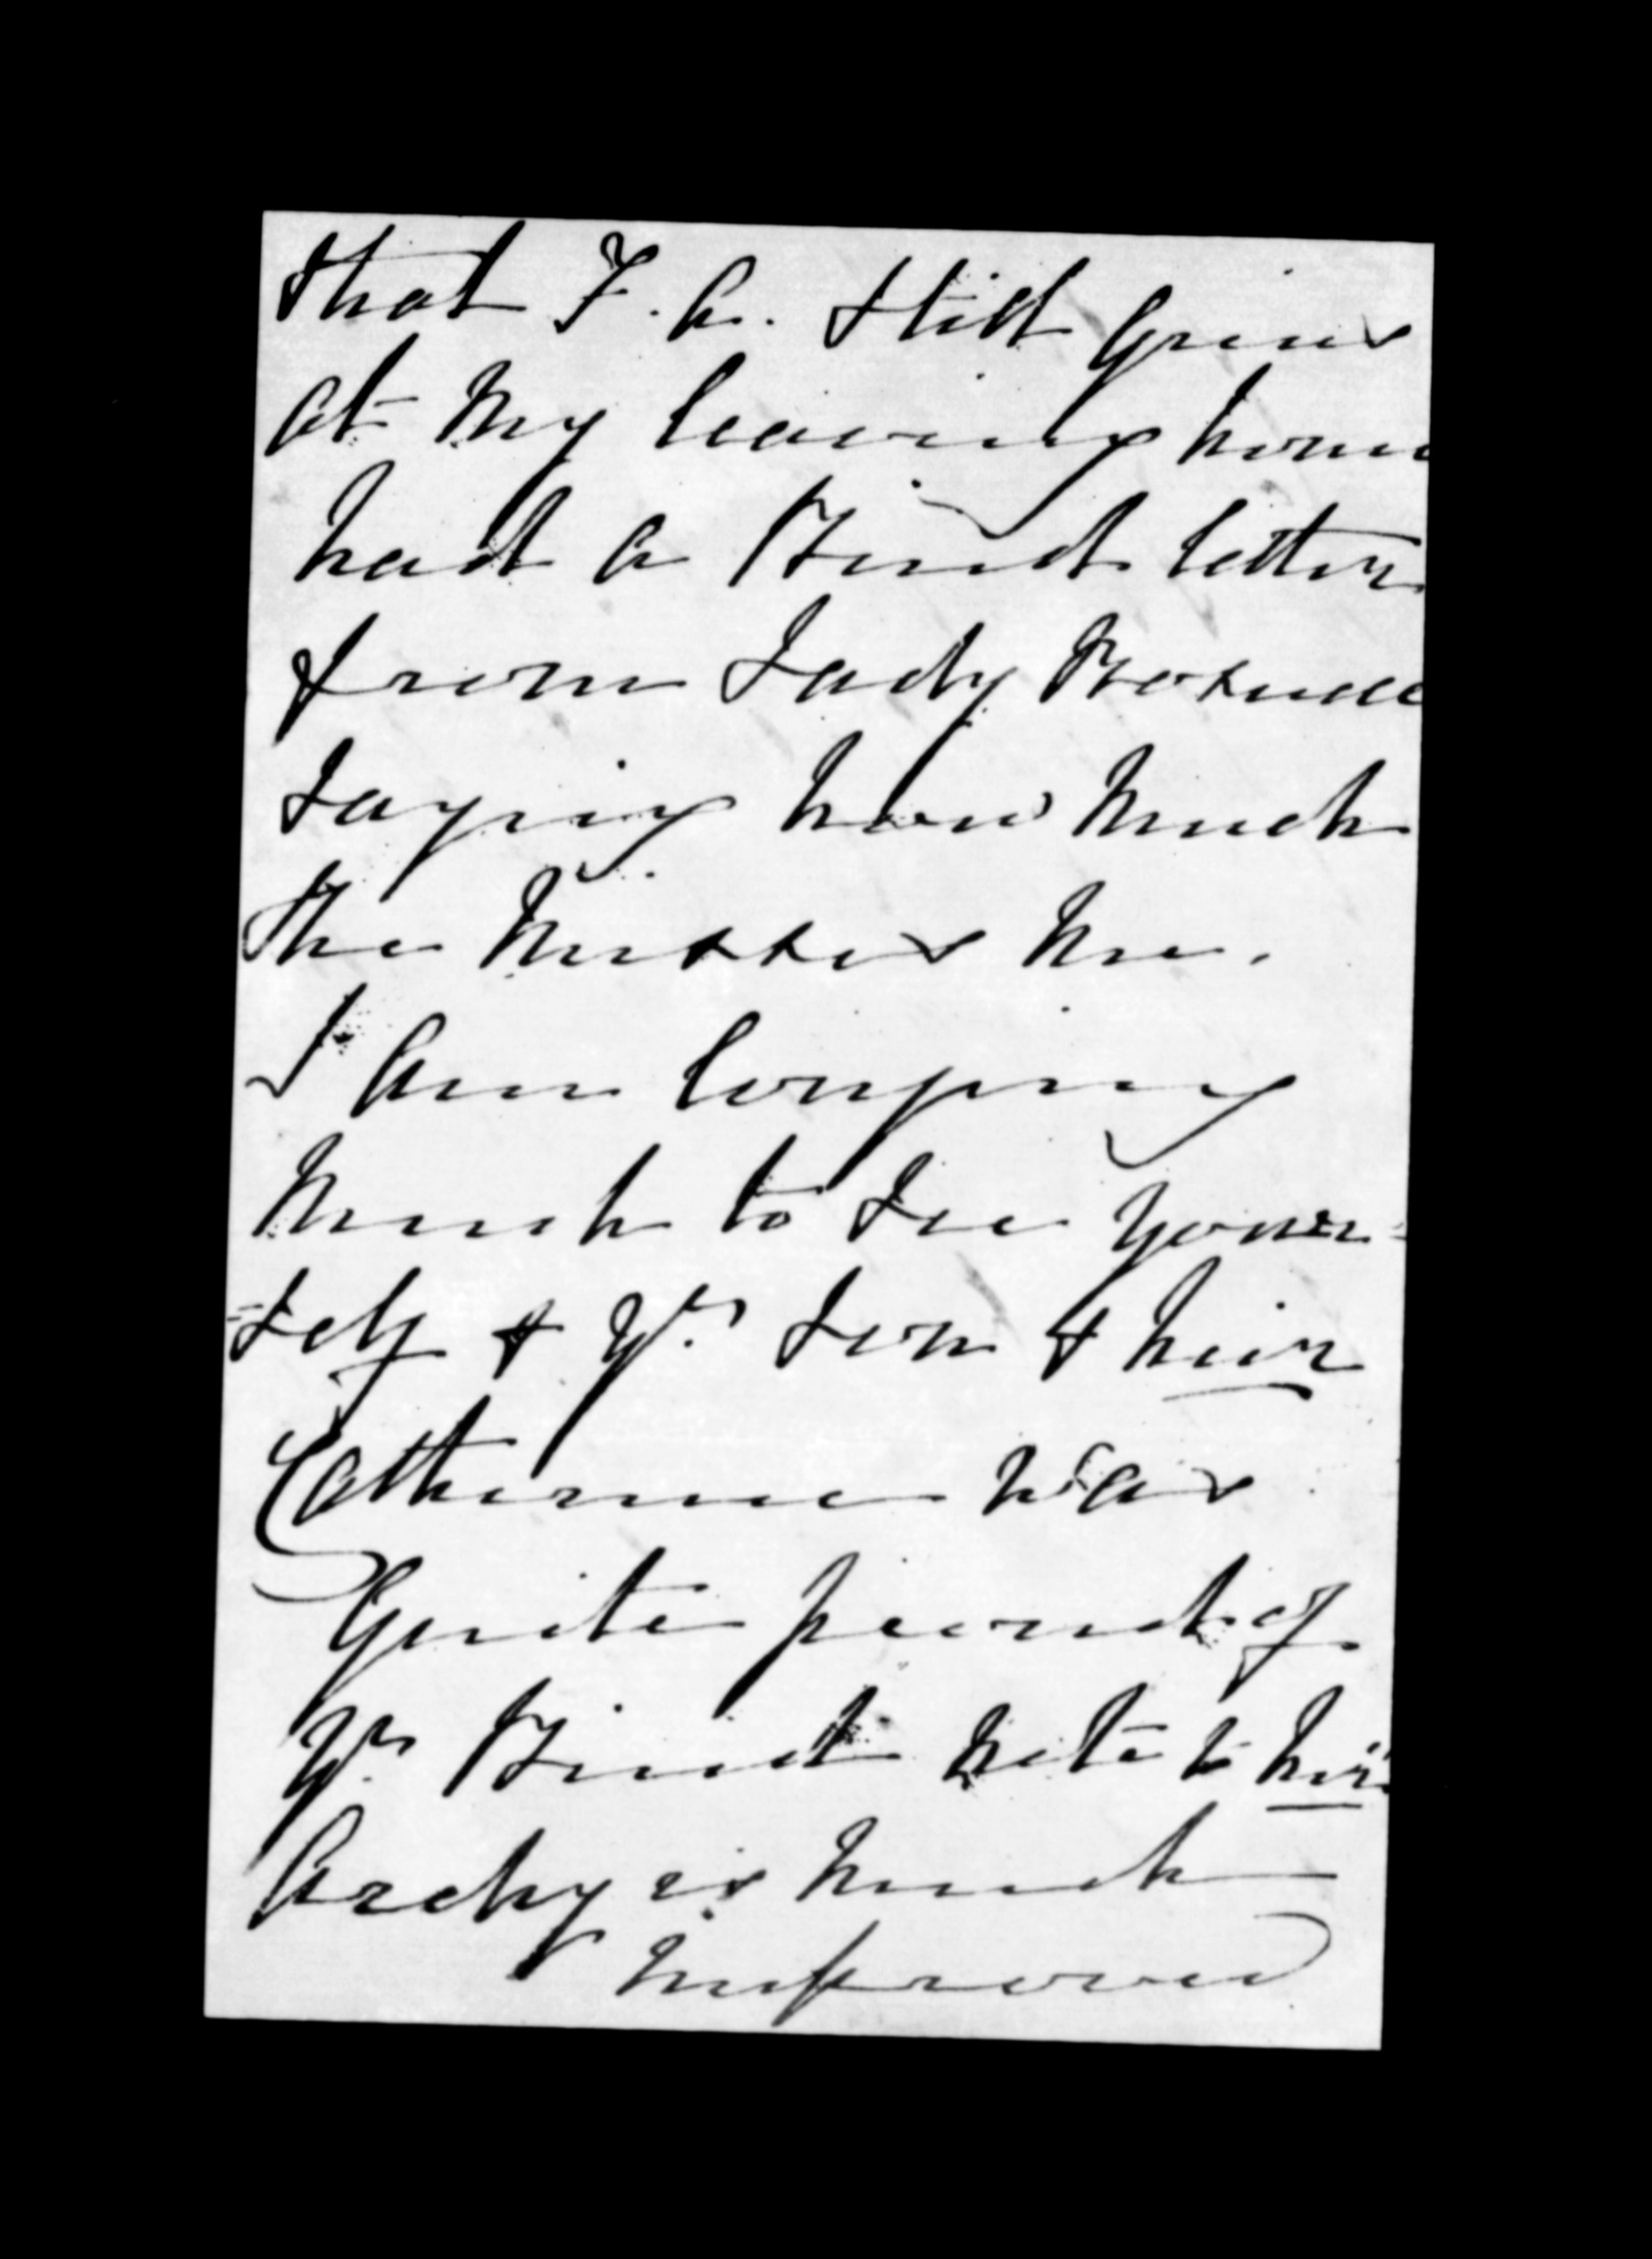 that F. A. still grieves
at my leaving home
had a Kind letter
from Lady
saying how much
she misses me.
I am longing
much to see your=
=self & yr. son & heir
Catherine was
Quite proud of
yr. Kind note to her.
Archy is much
improved